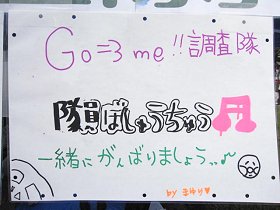 Go=3 me!!調査隊
隊員ぼしゅうちゅう
一緒にがんばりましょう…♪
by まゆり♥